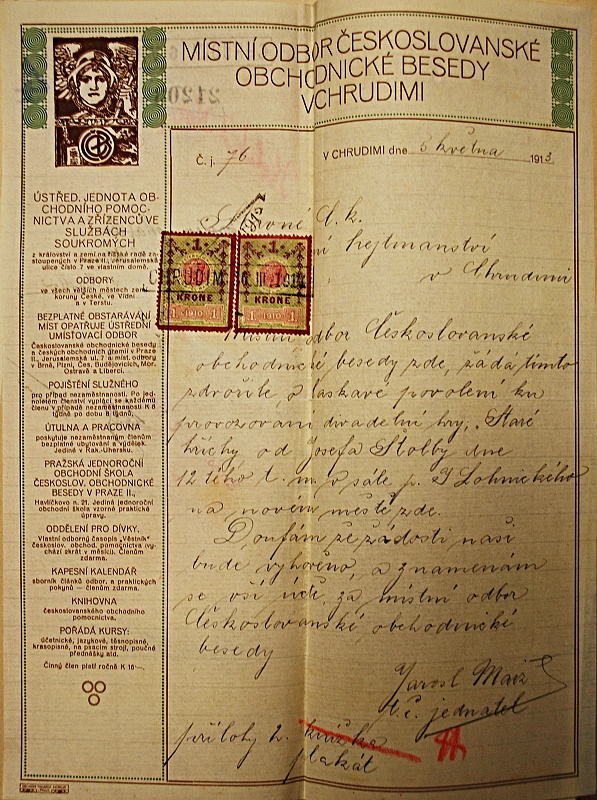 MÍSTNÍ ODBOR ČESKOSLOVANSKÉ
OBCHODNICKÉ BESEDY
V CHRUDIMI
Č. j. 76
V CHRUDIMI dne 3 května 1913
ÚSTŘED. JEDNOTA OB-
CHODNÍHO POMOC-
NICTVA A ZŘÍZENCŮ VE
SLUŽBÁCH
SOUKROMÝCH
z království a zemí na říšské radě za-
stoupených v Praze II., Jerusalemská
ulice číslo 7 ve vlastním domě.
ODBORY
ve všech větších městech zemí
koruny České, ve Vídni
a v Terstu.
BEZPLATNÉ OBSTARÁVÁNÍ
MÍST OPATŘUJE ÚSTŘEDNÍ
UMISŤOVACÍ ODBOR
Českoslovanské obchodnické besedy
a českých obchodních gremií v Praze
II., Jerusalemská ul. 7 a míst. odbory
v Brně, Plzni, Čes. Budějovicích, Mor.
Ostravě a Liberci.
POJIŠTĚNÍ SLUŽNÉHO
pro případ nezaměstnanosti. Po jed-
noletém členství vyplácí se každému
členu v případě nezaměstnanosti K 8
týdně po dobu 8 týdnů.
ÚTULNA A PRACOVNA
poskytuje nezaměstnaným členům
bezplatné ubytování a výdělek.
Jediné v Rak.-Uhersku.
PRAŽSKÁ JEDNOROČNÍ
OBCHODNÍ ŠKOLA
ČESKOSLOV. OBCHODNICKÉ
BESEDY V PRAZE II.,
Havlíčkovo n. 21. Jediná jednoroční
obchodní škola vzorné praktické
úpravy.
ODDĚLENÍ PRO DÍVKY.
Vlastní odborný časopis „Věstník"
českoslov. obchod. pomocnictva (vy-
chází 2krát v měsíci). Členům
zdarma.
KAPESNÍ KALENDÁŘ
sborník článků odbor. a praktických
pokynů — členům zdarma.
KNIHOVNA
českoslovanského obchodního
pomocnictva.
POŘÁDÁ KURSY:
účetnické, jazykové, těsnopisné,
krasopisné, na psacím stroji, poučné
přednášky atd.
Činný člen platí ročně K 16·—.
Slavné c. k.
hejtmanství
v Chrudimi
1 1
KRONE KRONE
1 1910 1 1 1910 1
CHRUDIM
Místní odbor Českoslovanské
obchodnické besedy zde, žádá tímto
zdvořile o laskavé povolení ku
provozování divadelní hry, „Staré
hříchy od Josefa Štolby dne
12 tého t. m. v sále p. J Lohnického
na novém městě zde.
Doufám že žádosti naší
bude vyhověno, a znamenám
se vší úctě, za místní odbor
Českoslovanské obchodnické
besedy
Jarosl
t. č. jednatel
přílohy 2. knížka
plakát